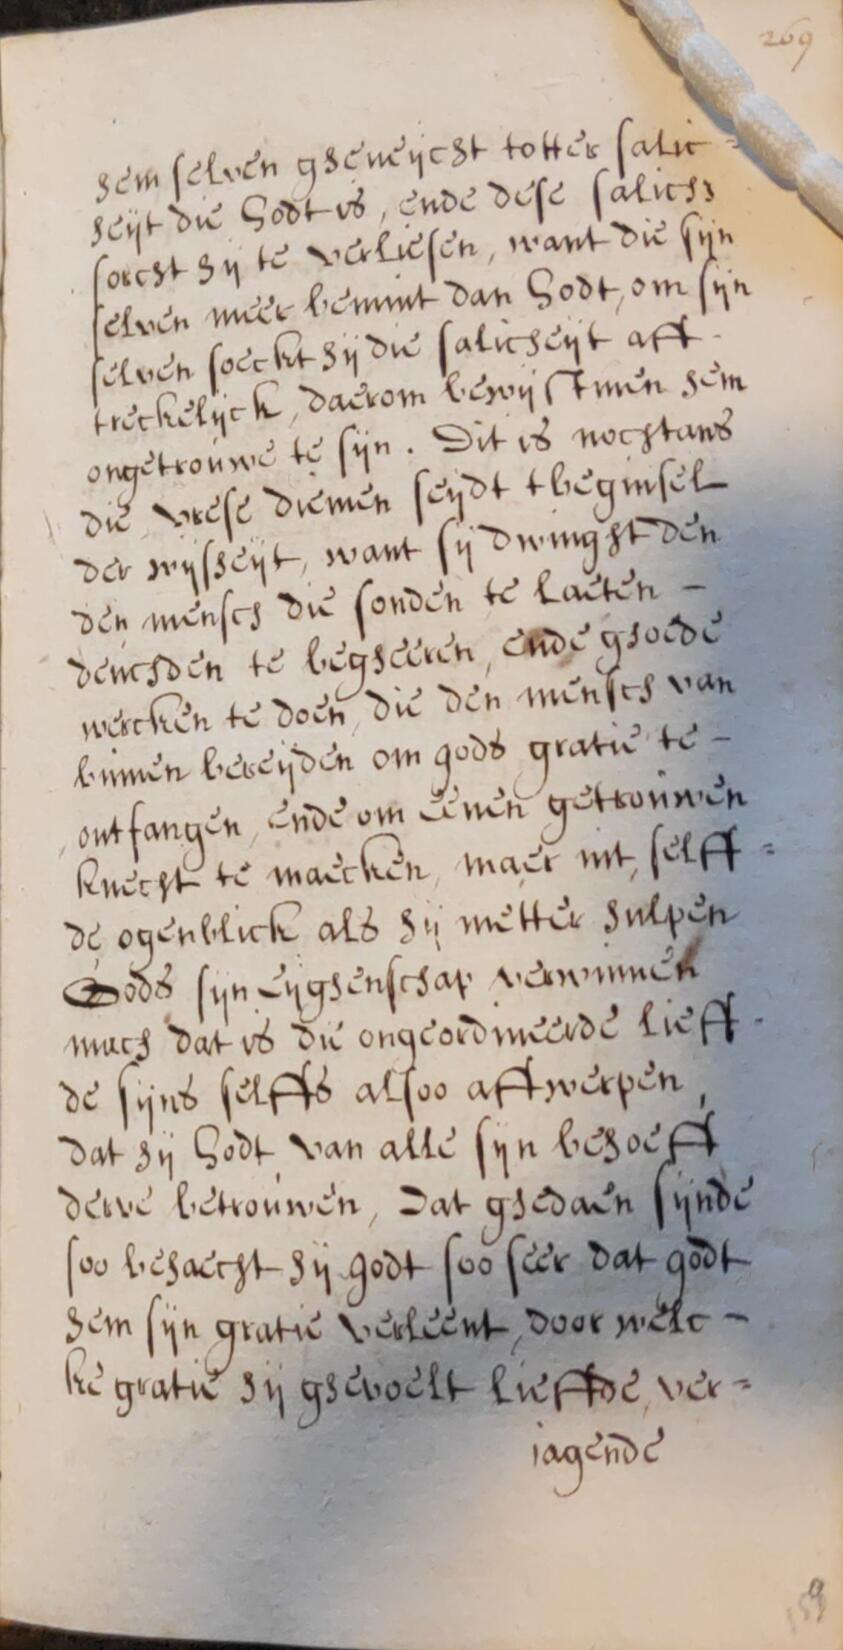 269
hem selven gheneijcht totter salic=
heijt die Godt is, ende dese salich⸗
sorcht hij te verliesen, want die sijn
selven meer bemint dan Godt, om sijn
selven soeckt hij die salicheijt aff-
treckelijck, daerom bewijstmen hem
ongetrouwe te sijn. Dit is nochtans
die vrese diemen seijdt tbeginsel
der wijsheijt, want sij dwinght den
den mensch die sonden te laeten -
deuchden te begheeren, ende ghoede
wercken te doen, die den mensch van
binnen bereijden om gods gratie te -
ontfangen, ende om eenen getrouwen
knecht te maecken, maer int, selff=
de ogenblick als hij metter hulpen
Gods sijn eijghenschap verwinnen
mach dat is die ongeordineerde lieff-
de sijns selffs alsoo affwerpen,
dat hij Godt van alle sijn behoeff
derve betrouwen, Dat ghedaen sijnde
soo behaecht hij godt soo seer dat godt
hem sijn gratie verleent, door welc-
ke gratie hij ghevoelt lieffde, ver=
iagende